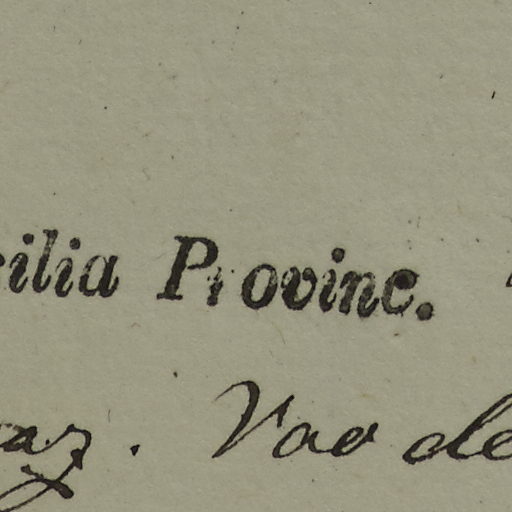 cilia Provinc.
az. Vao de